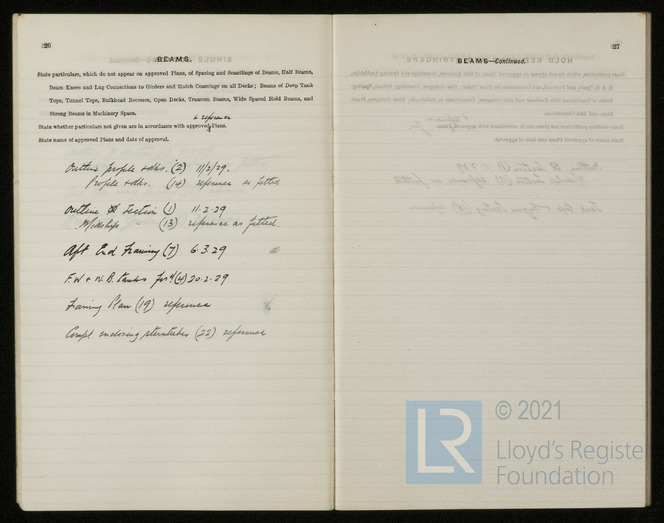 26
BEAMS.
State particulars, which do not appear on approved Plans, of Spacing and Scantlings of Beams, Half Beams,
Beam Knees and Lug Connections to Girders and Hatch Coamings on all Decks; Beams of Deep Tank
Tops, Tunnel Tops, Bulkhead Recesses, Open Decks, Transom Beams, Wide Spaced Hold Beams, and
Strong Beams in Machinery Space.
& reference
State whether particulars not given are in accordance with approved Plans.
State name of approved Plans and date of approval.
Outline profile & dks. (2) 11/2/29.
Profile & dks. (14) reference as fitted
Outline Section (1) 11.2.29
Midships " (13) reference as fitted.
Aft End Framing (7) 6.3.29
F.W & W.B. tanks (4) 20.2.29
Framing Plan (19) reference
Compt enclosing sterntubes (22) reference
27
BEAMS—Continued.
LR
© 2021
Lloyd's Register
Foundation